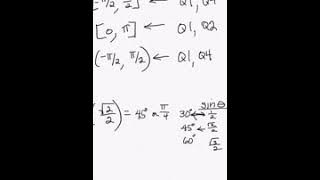 -π/2, π/2] ← Q1, Q4
[0, π] ← Q1, Q2
(-π/2, π/2) ← Q1, Q4
(√2/2) = 45° or π/4
sin θ
30° ↔ 1/2
45° ← √2/2
60° √3/2